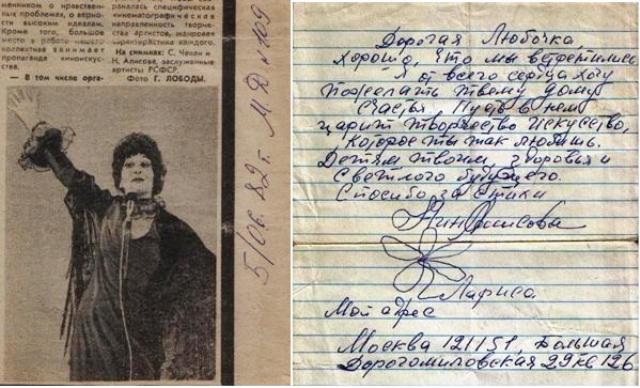 менником о нравствен-
ных проблемах, о верно-
сти высоким идеалам.
Кроме того, большое
место в работе
коллектива занимает
пропаганда киноискус-
ства.
— В том числе орга-
ралась специфическая
«кинематографическая
направленность творче-
ства артистов, жанровая
характеристика каждого.
На снимках: С. Чекан и
Н. Алисова, заслуженные
артисты РСФСР.
Фото Г. ЛОБОДЫ.
5/06.82 г. М. Д. № 109
Дорогая Любочка,
Хорошо, что мы встретились
Я от всего сердца хочу
пожелать твоему дому
счастья, Пусть в нем
царит творчество искусство,
которое ты так любишь.
Детям твоим, здоровья и
Светлого будущего.
Спасибо за стихи
Нин Алисова
Лариса
Мой адрес
Москва 121151, Большая
Дорогомиловская 29 кв 126